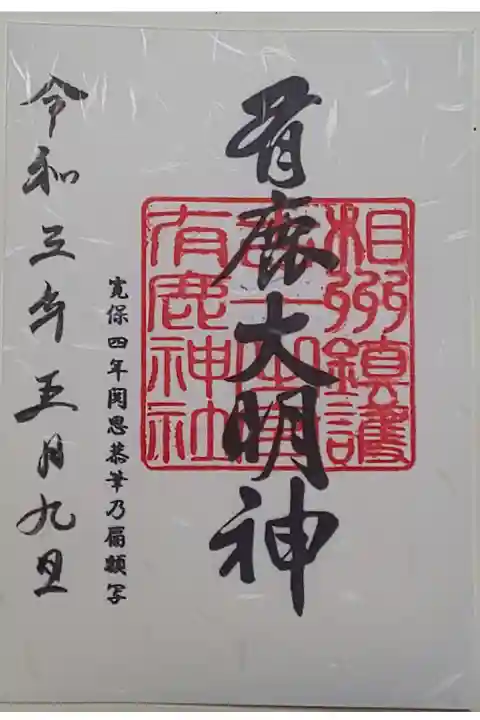 有鹿大明神
相州鎮護
有鹿神社
寛保四年関思恭筆乃扁額写
令和三年五月九日